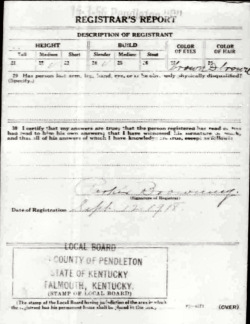 REGISTRAR'S REPORT
DESCRIPTION OF REGISTRANT
HEIGHT BUILD COLOR OF EYES COLOR OF HAIR
Tall Medium Short Slender Medium Stout
21 22 23 24 25 26 27 28
Brown Brown
29 Has person lost arm, leg, hand, eye, or is he obviously physically disqualified?
(Specify.)
30 I certify that my answers are true; that the person registered has read or has
had read to him his own answers; that I have witnessed his signature or mark,
and that all of his answers of which I have knowledge are true, except as follows:
(Signature of Registrar)
Date of Registration Sept 12 1918
LOCAL BOARD
COUNTY OF PENDLETON
STATE OF KENTUCKY
FALMOUTH, KENTUCKY.
(STAMP OF LOCAL BOARD)
(The stamp of the Local Board having jurisdiction of the area in which
the registrant has his permanent home shall be placed in this box.)
(OVER)